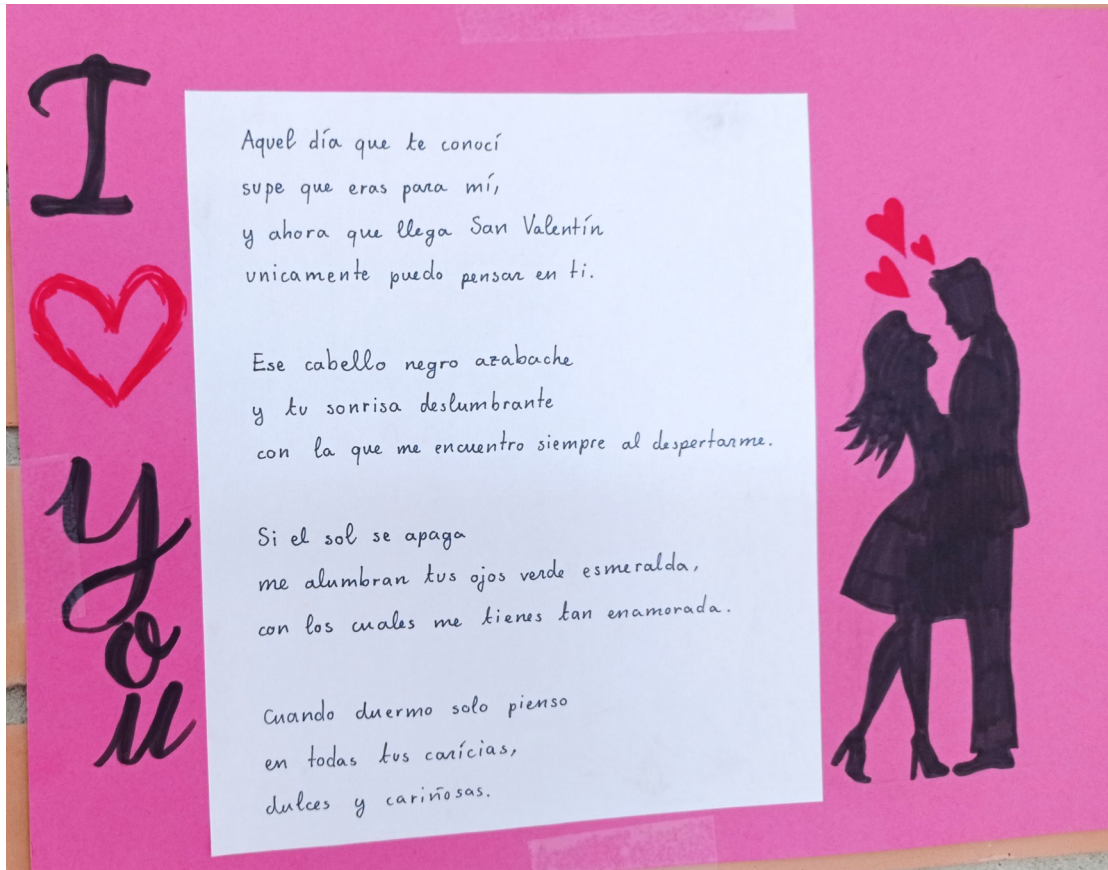 I
You
Aquel día que te conocí
supe que eras para mí,
y ahora que llega San Valentín
unicamente puedo pensar en ti.
Ese cabello negro azabache
y tu sonrisa deslumbrante
con la que me encuentro siempre al despertarme.
Si el sol se apaga
me alumbran tus ojos verde esmeralda,
con los cuales me tienes tan enamorada.
Cuando duermo solo pienso
en todas tus carícias,
dulces y cariñosas.